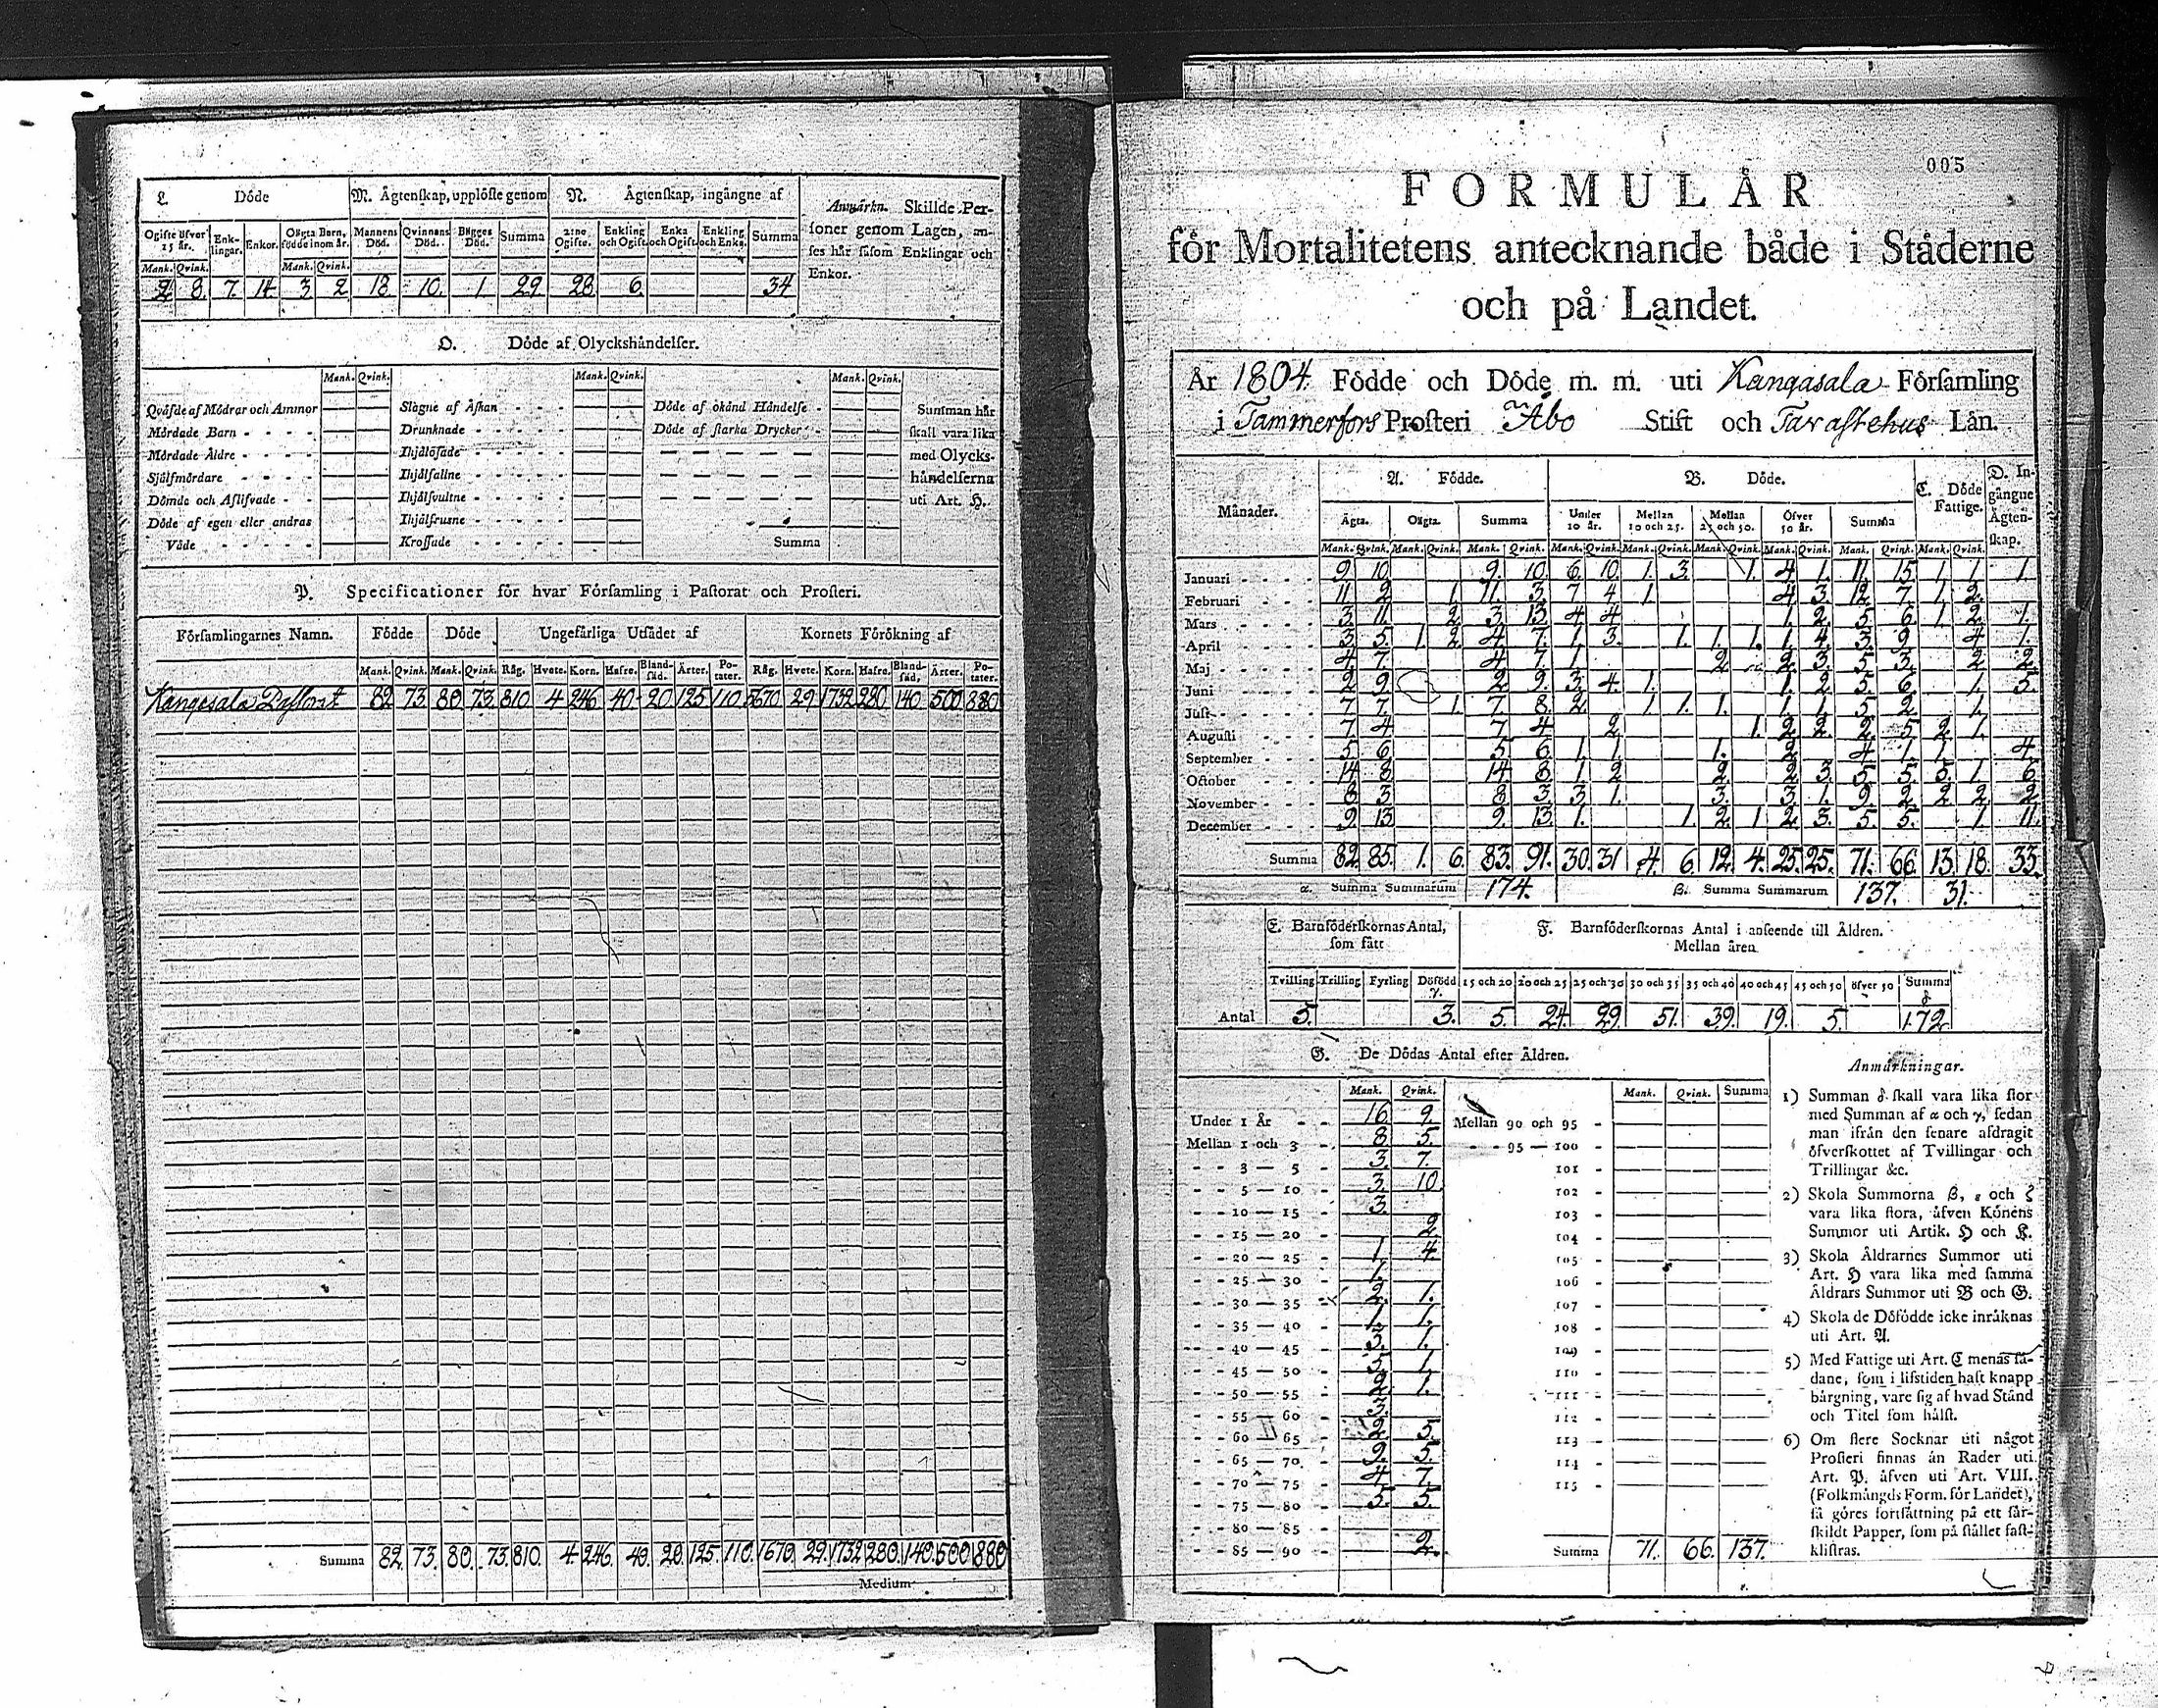 L. Döde
M. Ägtenskap, upplöste genom
N. Ägtenskap, ingångne af
Anmärkn. Skillde Per-
soner genom Lagen, an-
ses här såsom Enklingar och
Enkor.
Ogifte öfver 15 år. Enk-lingar. Enkor. Oägta Barn, födde inom år. Mannens Död. Qvinnans Död. Bägges Död. Summa 2:ne Ogifte. Enkling och Ogift. Enka och Ogift. Enkling och Enka. Summa
Mank. Qvink. Mank. Qvink.
2 8. 7. 14 3 2 18 10. 1. 29. 28 6. 34
O. Döde af Olyckshändelser.
Mank. Qvink. Mank. Qvink. Mank. Qvink.
Qväfde af Mödrar och Ammor Slagne af Åskan Döde af okänd Händelse Summan här
Mördade Barn Drunknade Döde af starka Drycker skall vara lika
Mördade Äldre Ihjälösade med Olycks-
Självmördare Ihjälfallne händelserna
Dömde och Aflifvade Ihjälsvultne uti Art. H.
Döde af egen eller andras Ihjälfrusne
Våde Krossade Summa
P. Specificationer för hvar Församling i Pastorat och Prosteri.
Församlingarnes Namn. Födde Döde Ungefärliga Utsädet af Kornets Förökning af
Mank. Qvink. Mank. Qvink. Råg. Hvete. Korn. Hafre. Bland-säd. Ärter. Po-tater. Råg. Hvete. Korn. Hafre. Bland-säd. Ärter. Po-tater.
Kangasala Pastorat 82 73 80 73 810 4 246 40 20 125 110 5670 29 1732 280 140 500 880
Summa 82. 73. 80. 73. 810. 4. 246. 40. 20. 125. 110. 1670. 29. 1732. 280. 140. 500. 880
Medium
005
FORMULÄR
för Mortalitetens antecknande både i Städerne
och på Landet.
År 1804. Födde och Döde m. m. uti Kangasala Församling
i Tammerfors Prosteri Åbo Stift och Tavastehus Län.
Månader. A. Födde. B. Döde. C. Döde Fattige. D. In-gångne Ägten-skap.
Ägta. Oägta. Summa Under 10 år. Mellan 10 och 25. Mellan 25 och 50. Öfver 50 år. Summa
Mank. Qvink. Mank. Qvink. Mank. Qvink. Mank. Qvink. Mank. Qvink. Mank. Qvink. Mank. Qvink. Mank. Qvink. Mank. Qvink.
Januari 9. 10. 9. 10. 6. 10. 1. 3. 1. 4 1. 11. 15. 1. 1. 1.
Februari 11. 2 1. 11. 3. 7 4 1. 4 3. 12. 7 1. 2.
Mars 3. 11. 2. 3. 13. 4 4 1. 2. 5. 6. 1. 2. 1.
April 3 5. 1. 2. 4 7. 1. 3. 1. 1. 1. 1. 4 3. 9. 4 1.
Maj 4. 7. 4 7. 1 2. 2. 3. 5. 3. 2. 2.
Juni 2. 9. 2 9. 3. 4. 1. 1. 2. 5. 6. 1. 5.
Julii 7. 7. 1. 7 8. 2. 1. 1. 1. 1. 1. 5. 2. 1.
Augusti 7. 4 7. 4 2. 1. 2. 2. 2. 5. 2. 1.
September 5 6 5. 6. 1. 1. 1. 2. 4. 1. 1. 4.
October 14 8 14 8 1. 2 2. 2. 3. 5. 5. 5. 1. 6.
November 8 3 8 3 3. 1. 3. 3. 1. 9. 2. 2. 2. 2.
December 9. 13. 9. 13. 1. 1. 2. 1. 2. 3. 5. 5. 1. 11.
Summa 82. 85. 1. 6. 83. 91. 30. 31 4. 6. 12. 4. 25. 25. 71. 66. 13. 18. 33.
α. Summa Summarum 174. β. Summa Summarum 137. 31.
E. Barnföderskornas Antal, som fått
F. Barnföderskornas Antal i anseende till Åldren.
Mellan åren
Tvilling Trilling Fyrling Dödfödd γ. 15 och 20 20 och 25 25 och 30 30 och 35 35 och 40 40 och 45 45 och 50 öfver 50 Summa δ
Antal 5. 3. 5. 24. 29. 51. 39. 19. 5. 172.
G. De Dödas Antal efter Åldren.
Mank. Qvink. Mank. Qvink. Summa
Under 1 År 16 9. Mellan 90 och 95
Mellan 1 och 3 8 5. 95 — 100
3 — 5 3. 7. 101
5 — 10 3. 10 102
10 — 15 3. 103
15 — 20 2. 104
20 — 25 1. 4. 105
25 — 30 1. 106
30 — 35 2. 1. 107
35 — 40 1. 1. 108
40 — 45 3. 1. 109
45 — 50 5. 1. 110
50 — 55 2. 1. 111
55 — 60 3. 112
60 — 65 2. 5. 113
65 — 70 9. 5. 114
70 — 75 4 7. 115
75 — 80 5. 5.
80 — 85
85 — 90 2. Summa 71. 66. 137.
Anmärkningar.
1) Summan δ skall vara lika stor
med Summan af α och γ, sedan
man ifrån den senare afdragit
öfverskottet af Tvillingar och
Trillingar &c.
2) Skola Summorna β, ε och ζ
vara lika stora, äfven Könens
Summor uti Artik. H och K.
3) Skola Åldrarnes Summor uti
Art. H vara lika med samma
Åldrars Summor uti B och G.
4) Skola de Dödfödde icke inräknas
uti Art. A.
5) Med Fattige uti Art. C menas så-
dane, som i lifstiden haft knapp
bärgning, vare sig af hvad Stånd
och Titel som hälst.
6) Om flere Socknar uti något
Prosteri finnas än Rader uti
Art. P. äfven uti Art. VIII.
(Folkmängds Form. för Landet),
så göres fortsättning på ett sär-
skildt Papper, som på stället fast-
klistras.